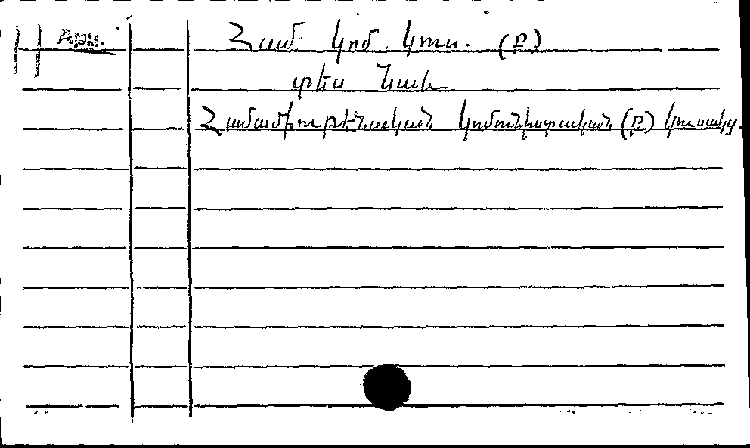 Арм. Համ. կոմ. կուս. (բ)
տես նաև
Համամիութենական կոմունիստական (բ) կուսակց.